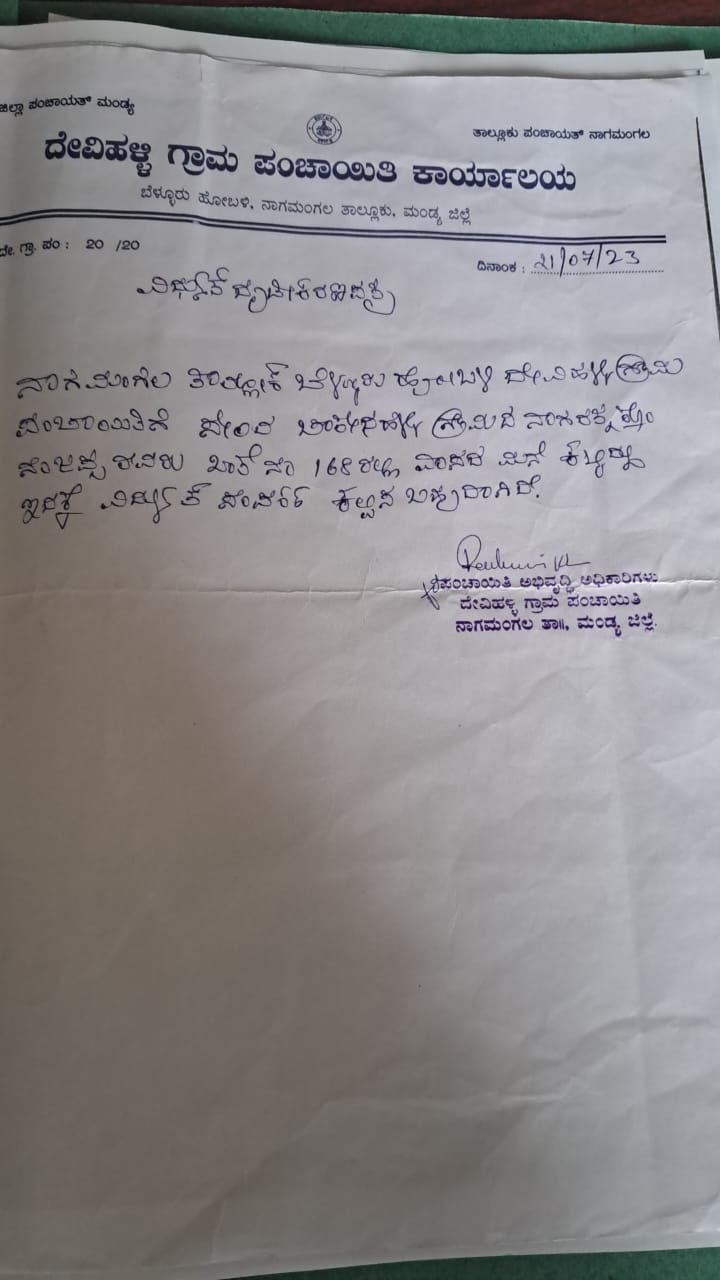 ಜಿಲ್ಲಾ ಪಂಚಾಯತ್ ಮಂಡ್ಯ
ತಾಲ್ಲೂಕು ಪಂಚಾಯತ್ ನಾಗಮಂಗಲ
ದೇವಿಹಳ್ಳಿ ಗ್ರಾಮ ಪಂಚಾಯಿತಿ ಕಾರ್ಯಾಲಯ
ಬೆಳ್ಳೂರು ಹೋಬಳಿ, ನಾಗಮಂಗಲ ತಾಲ್ಲೂಕು, ಮಂಡ್ಯ ಜಿಲ್ಲೆ
ದೇ. ಗ್ರಾ. ಪಂ : 20 /20
ದಿನಾಂಕ : 21/07/23
ನಾಗಮಂಗಲ ತಾಲ್ಲೂಕ್ ಬೆಳ್ಳೂರು ಹೋಬಳಿ ದೇವಿಹಳ್ಳಿ ಗ್ರಾಮ
ಪಂಚಾಯಿತಿಗೆ ಸೇರಿದ ಗ್ರಾಮದ
ರವರು ಖಾತೆ ನಂ 168 ರಲ್ಲಿ ವಾಸದ ಮನೆ
ಇದಕ್ಕೆ ವಿದ್ಯುತ್ ಸಂಪರ್ಕ ಕಲ್ಪಿಸ ಬಹುದಾಗಿದೆ.
ಪಂಚಾಯಿತಿ ಅಭಿವೃದ್ಧಿ ಅಧಿಕಾರಿಗಳು
ದೇವಿಹಳ್ಳಿ ಗ್ರಾಮ ಪಂಚಾಯಿತಿ
ನಾಗಮಂಗಲ ತಾ||, ಮಂಡ್ಯ ಜಿಲ್ಲೆ.